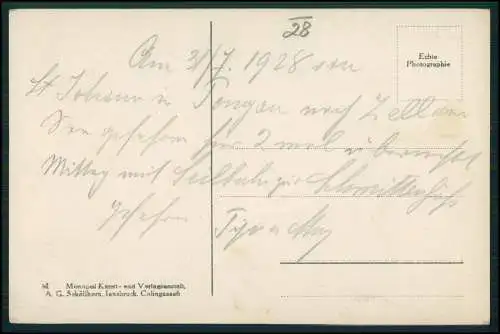 28
Am 31/7. 1928 von
St Johann in Pongau nach Zell am
See gefahren für 2 mal übernachtet
Mittag mit Seilbahn zur Schmittenhöhe
gefahren
Echte
Photographie
Monopol Kunst- und Verlagsanstalt,
A. G. Schöllhorn, Innsbruck, Colingasse